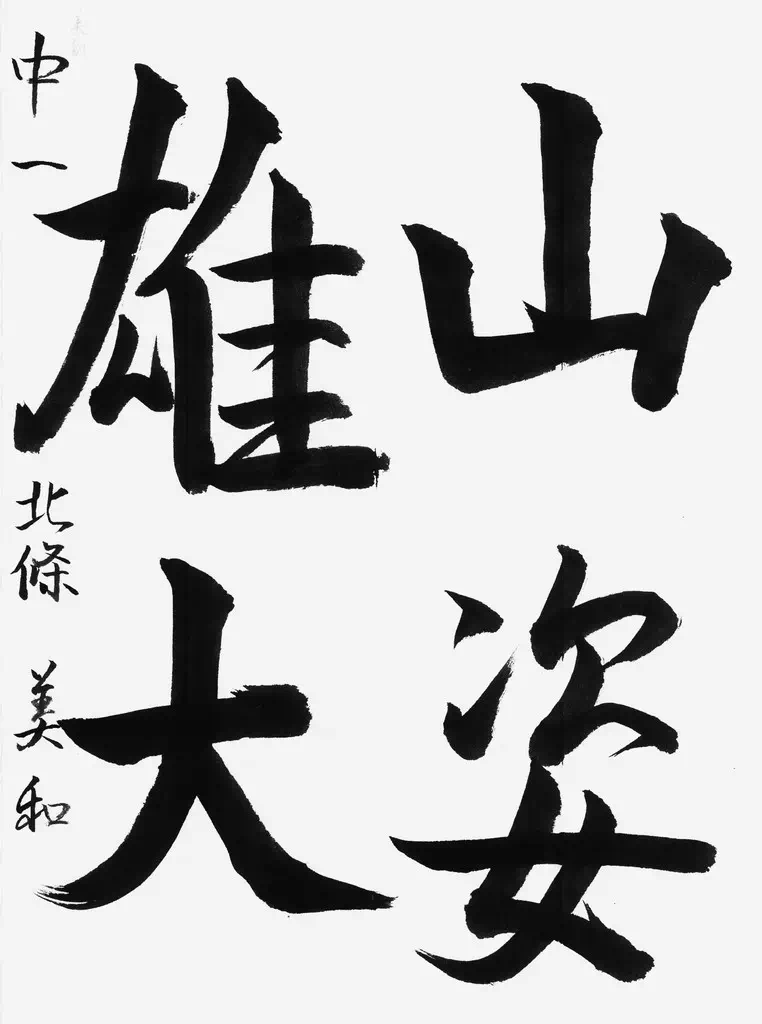 山姿
雄大
中一 北條 美和